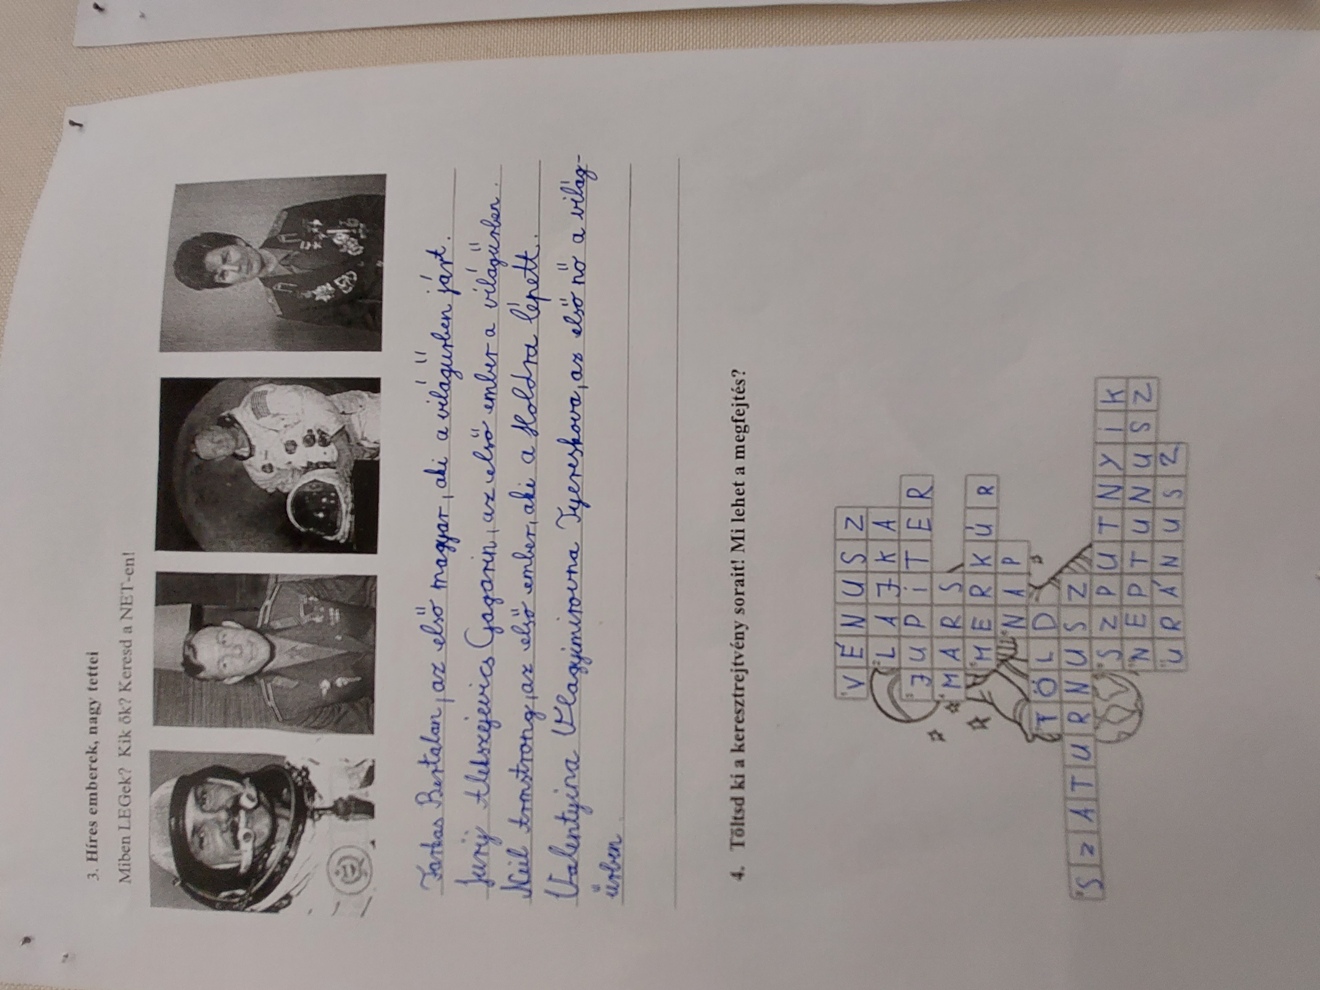 3. Híres emberek, nagy tettei
Miben LEGek? Kik ők? Keresd a NET-en!
Farkas Bertalan, az első magyar, aki a világűrben járt.
Jurij Alekszejevics Gagarin, az első ember a világűrben.
Neil Armstrong, az első ember, aki a Holdra lépett.
Valentyina Vlagyimirovna Tyereskova, az első nő a világ-
űrben
4. Töltsd ki a keresztrejtvény sorait! Mi lehet a megfejtés?
VÉNUSZ
LAJKA
JUPITER
MARS
MERKÚR
NAP
FÖLD
SZATURNUSZ
SZPUTNYIK
NEPTUNUSZ
URÁNUSZ